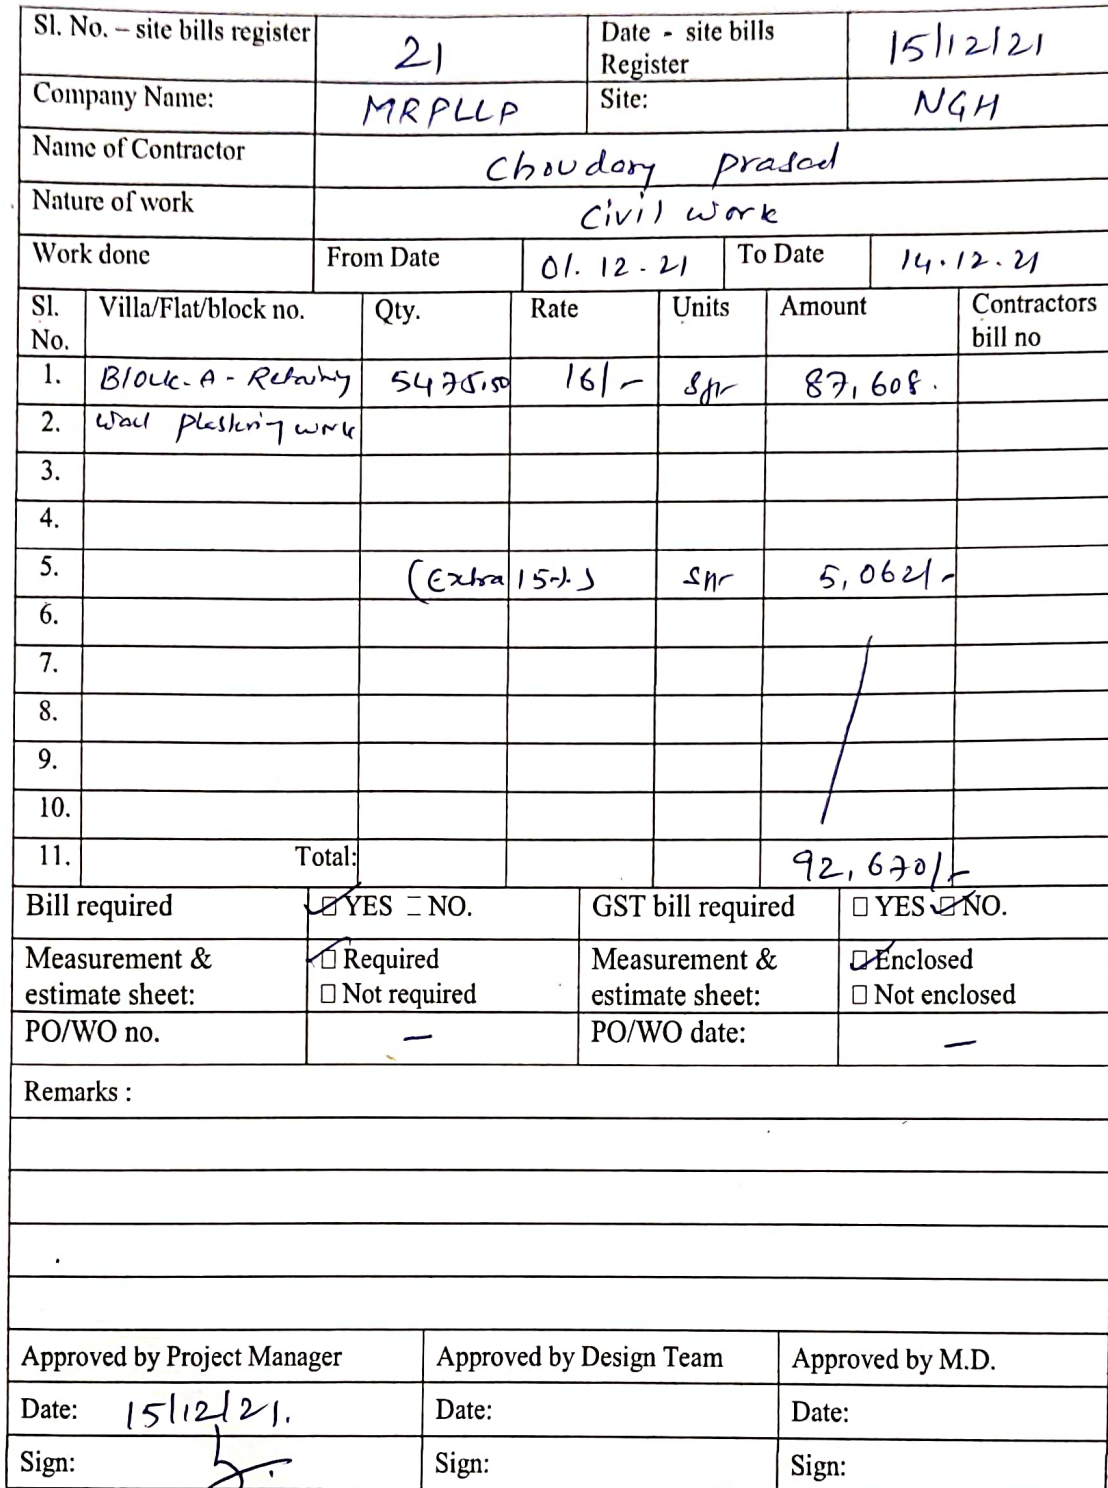 Sl. No. – site bills register 21 Date - site bills Register 15/12/21
Company Name: MRPLLP Site: NGH
Name of Contractor Choudary prasad
Nature of work Civil work
Work done From Date 01.12.21 To Date 14.12.21
Sl. No. Villa/Flat/block no. Qty. Rate Units Amount Contractors bill no
1. Block-A-Retaining 5475.50 16/- 87,608.
2. wall plastering work
3.
4.
5. (Extra 15%) 5,062/-
6.
7.
8.
9.
10.
11. Total: 92,670/-
Bill required □ YES □ NO. GST bill required □ YES □ NO.
Measurement & estimate sheet: □ Required Measurement & estimate sheet: □ Enclosed
□ Not required □ Not enclosed
PO/WO no. — PO/WO date: —
Remarks :
Approved by Project Manager Approved by Design Team Approved by M.D.
Date: 15/12/21. Date: Date:
Sign: Sign: Sign: